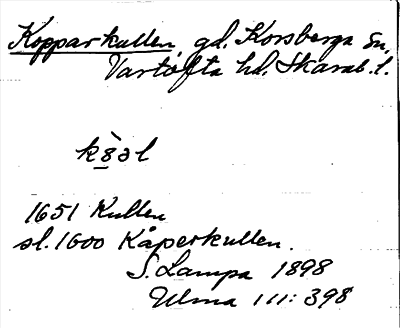 Kopparkullen, gd. Korsberga sn,
Vartofta hd. Skarab. l.
k8̀əl
1651 Kullen
sl. 1600 Kåperkullen.
S. Lampa 1898
Ulma 111: 398